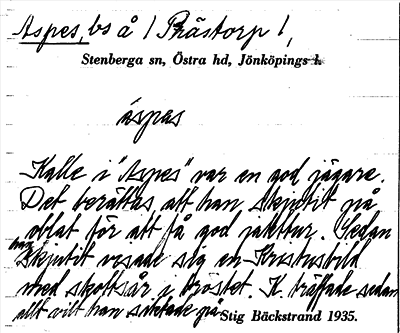 Aspes, bs å / Prästorp /,
Stenberga sn, Östra hd, Jönköpings l.
áspas
Kalle i "Aspes" var en god jägare.
Det berättas att han skjutit på
oblat för att få god jaktur. Sedan
han skjutit visade sig en Kristusbild
med skottsår i bröstet. K. träffade sedan
allt vilt han siktade på.
Stig Bäckstrand 1935.